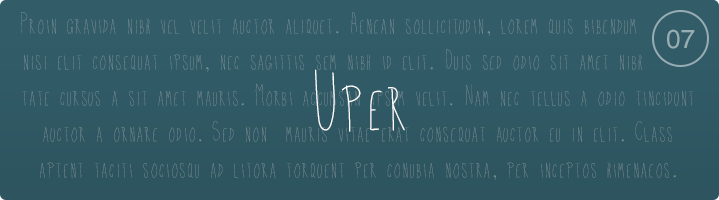 Proin gravida nibh vel velit auctor aliquet. Aenean sollicitudin, lorem quis bibendum
07
nisi elit consequat ipsum, nec sagittis sem nibh id elit. Duis sed odio sit amet nibh
tate cursus a sit amet mauris. Morbi accumsan ipsum velit. Nam nec tellus a odio tincidunt
Uper
auctor a ornare odio. Sed non mauris vitae erat consequat auctor eu in elit. Class
aptent taciti sociosqu ad litora torquent per conubia nostra, per inceptos himenaeos.